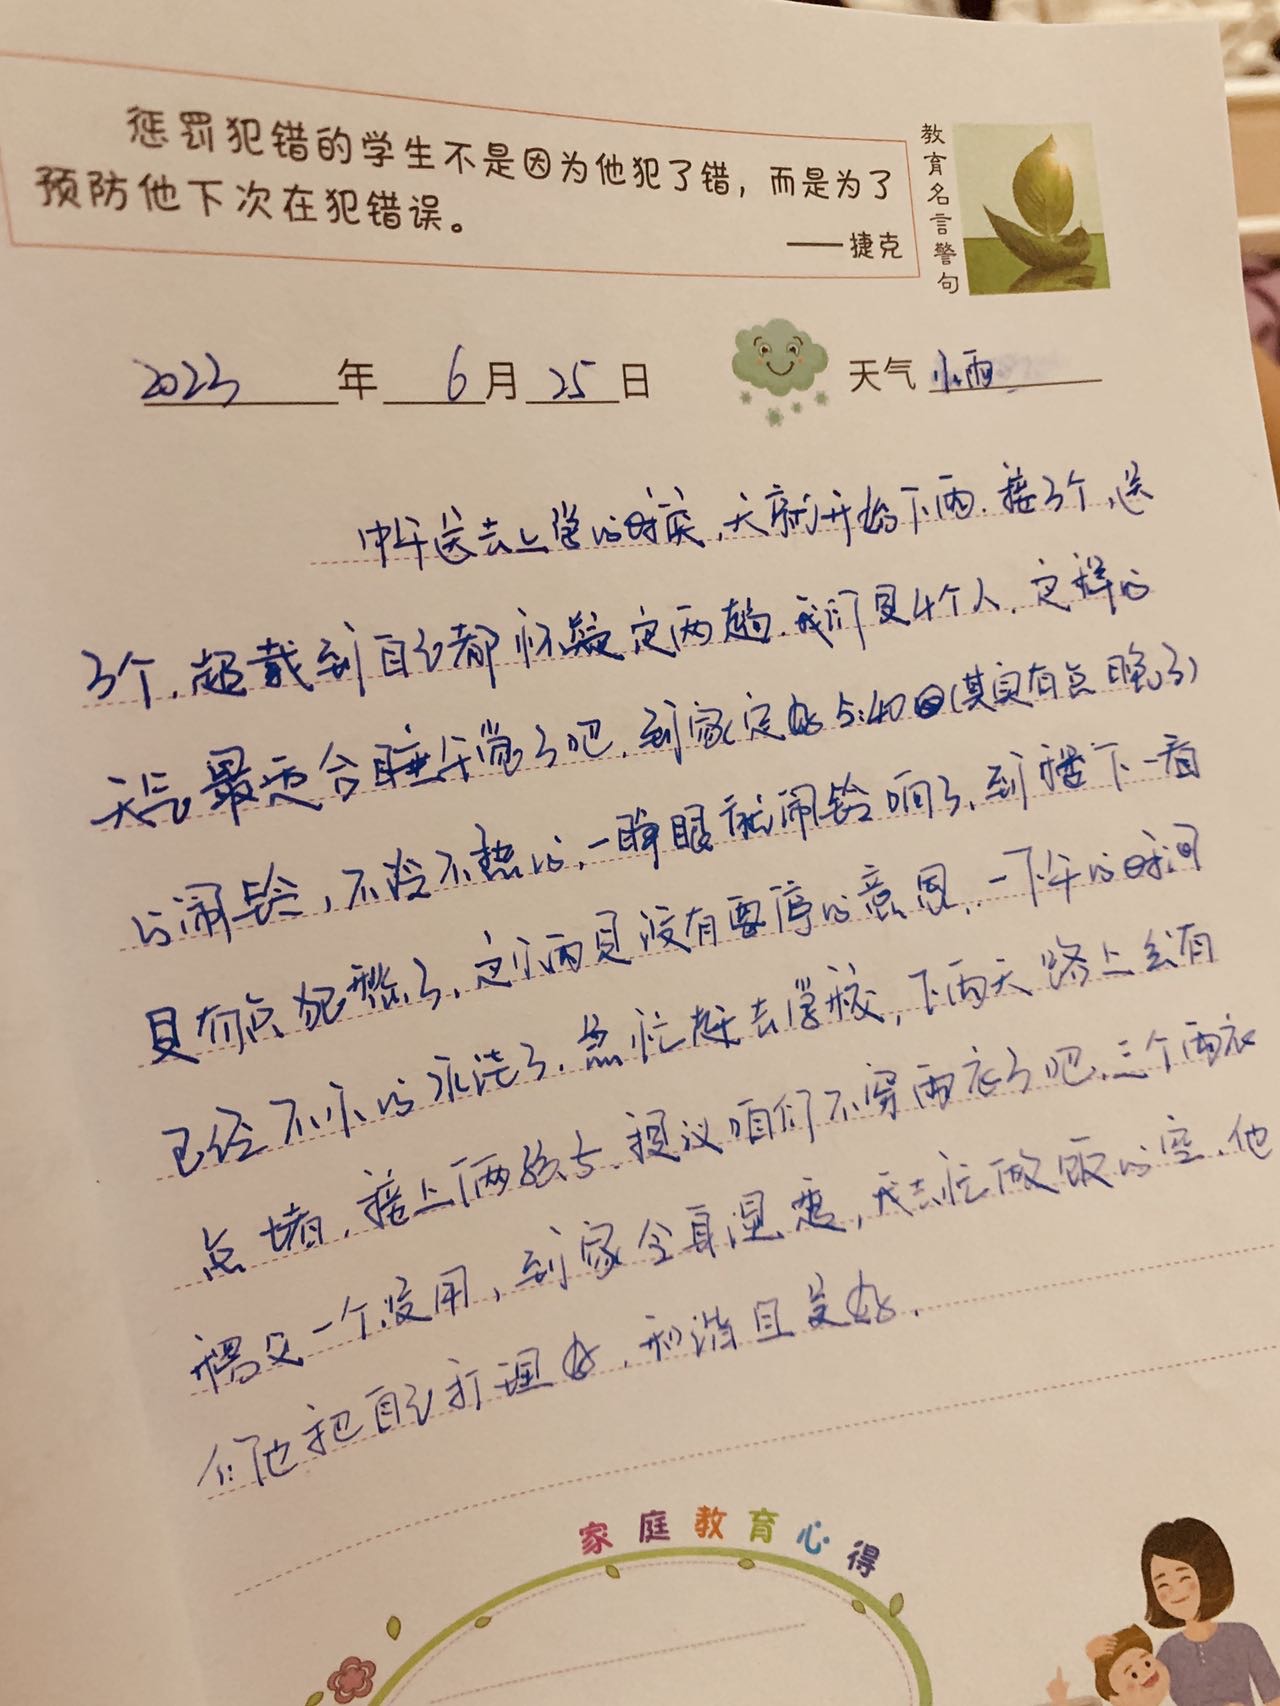 惩罚犯错的学生不是因为他犯了错，而是为了
预防他下次在犯错误。
——捷克
教育名言警句
2023年6月25日 天气 小雨
中午送去上学的时候，天就开始下雨．接3个，送
3个，超载到自己都怀疑定两趟．我们是4个人．这样的
天气最适合睡午觉了吧．到家定好5:40(其实有点晚了)
的闹铃，不冷不热的，一睁眼就闹铃响了，到楼下一看
具有点犯愁了，这小雨具没有要停的意思，一下午的时间
已经不小的水洼了．急忙赶去学校，下雨天路上会有
点堵，接上俩孩子．提议咱们不穿雨衣了吧．三个雨衣
一个没用，到家全身湿透，我去忙做饭的空，他
们也把自己打理好，和谐且美好．
家庭教育心得